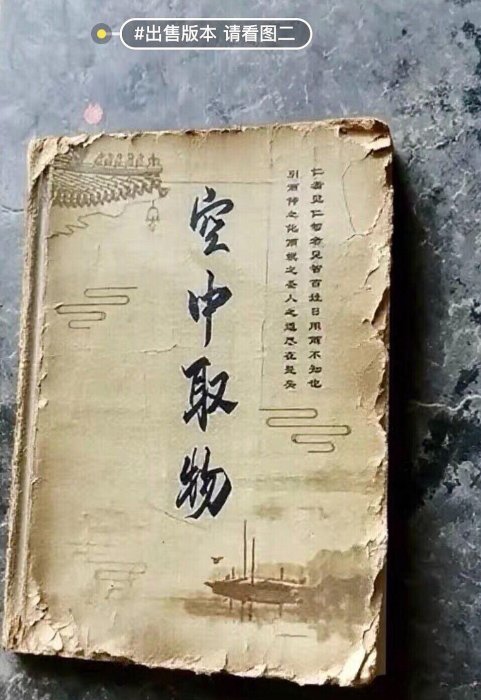 #出售版本 请看图二
空中取物
仁者见仁智者见智百姓日用而不知也
引而伸之化而裁之圣人之道尽在是矣